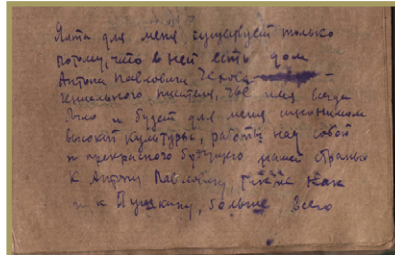 Ялта для меня существует только
потому, что в ней есть дом
Антона Павловича Чехова –
гениального писателя, чьё имя всегда
было и будет для меня источником
высокой культуры, работы над собой
и прекрасного будущего нашей страны
К Антону Павловичу, так же как
и к Пушкину, больше всего